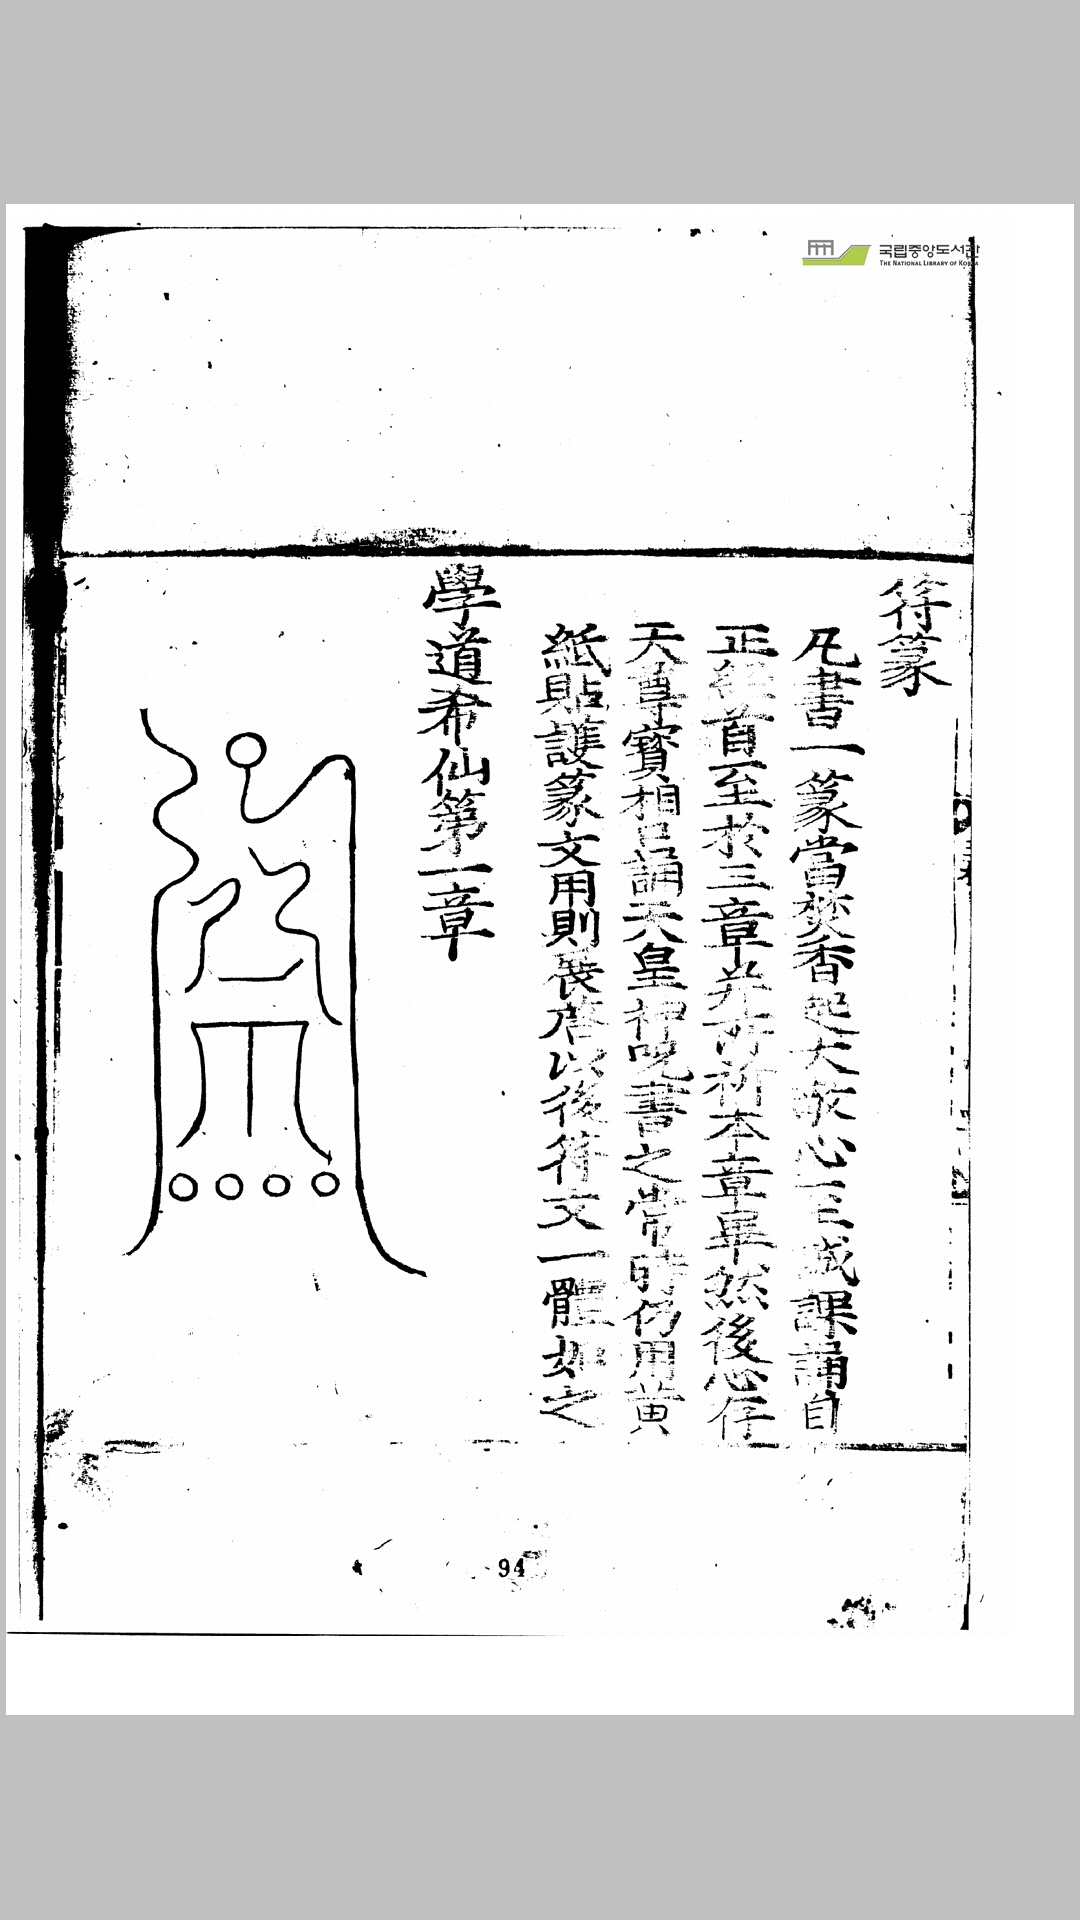 국립중앙도서관
THE NATIONAL LIBRARY OF KOREA
符篆
凡書一篆當焚香起大敬心三或課誦自
正經首至於三章并所祈本章畢然後心存
天尊寶相口誦天皇神呪書之常時仍用黄
紙貼護篆文用則展啓以後符文一體如之
學道希仙第一章
94